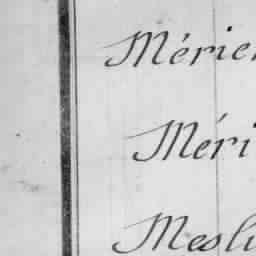 Mérie
Méri
Mesli